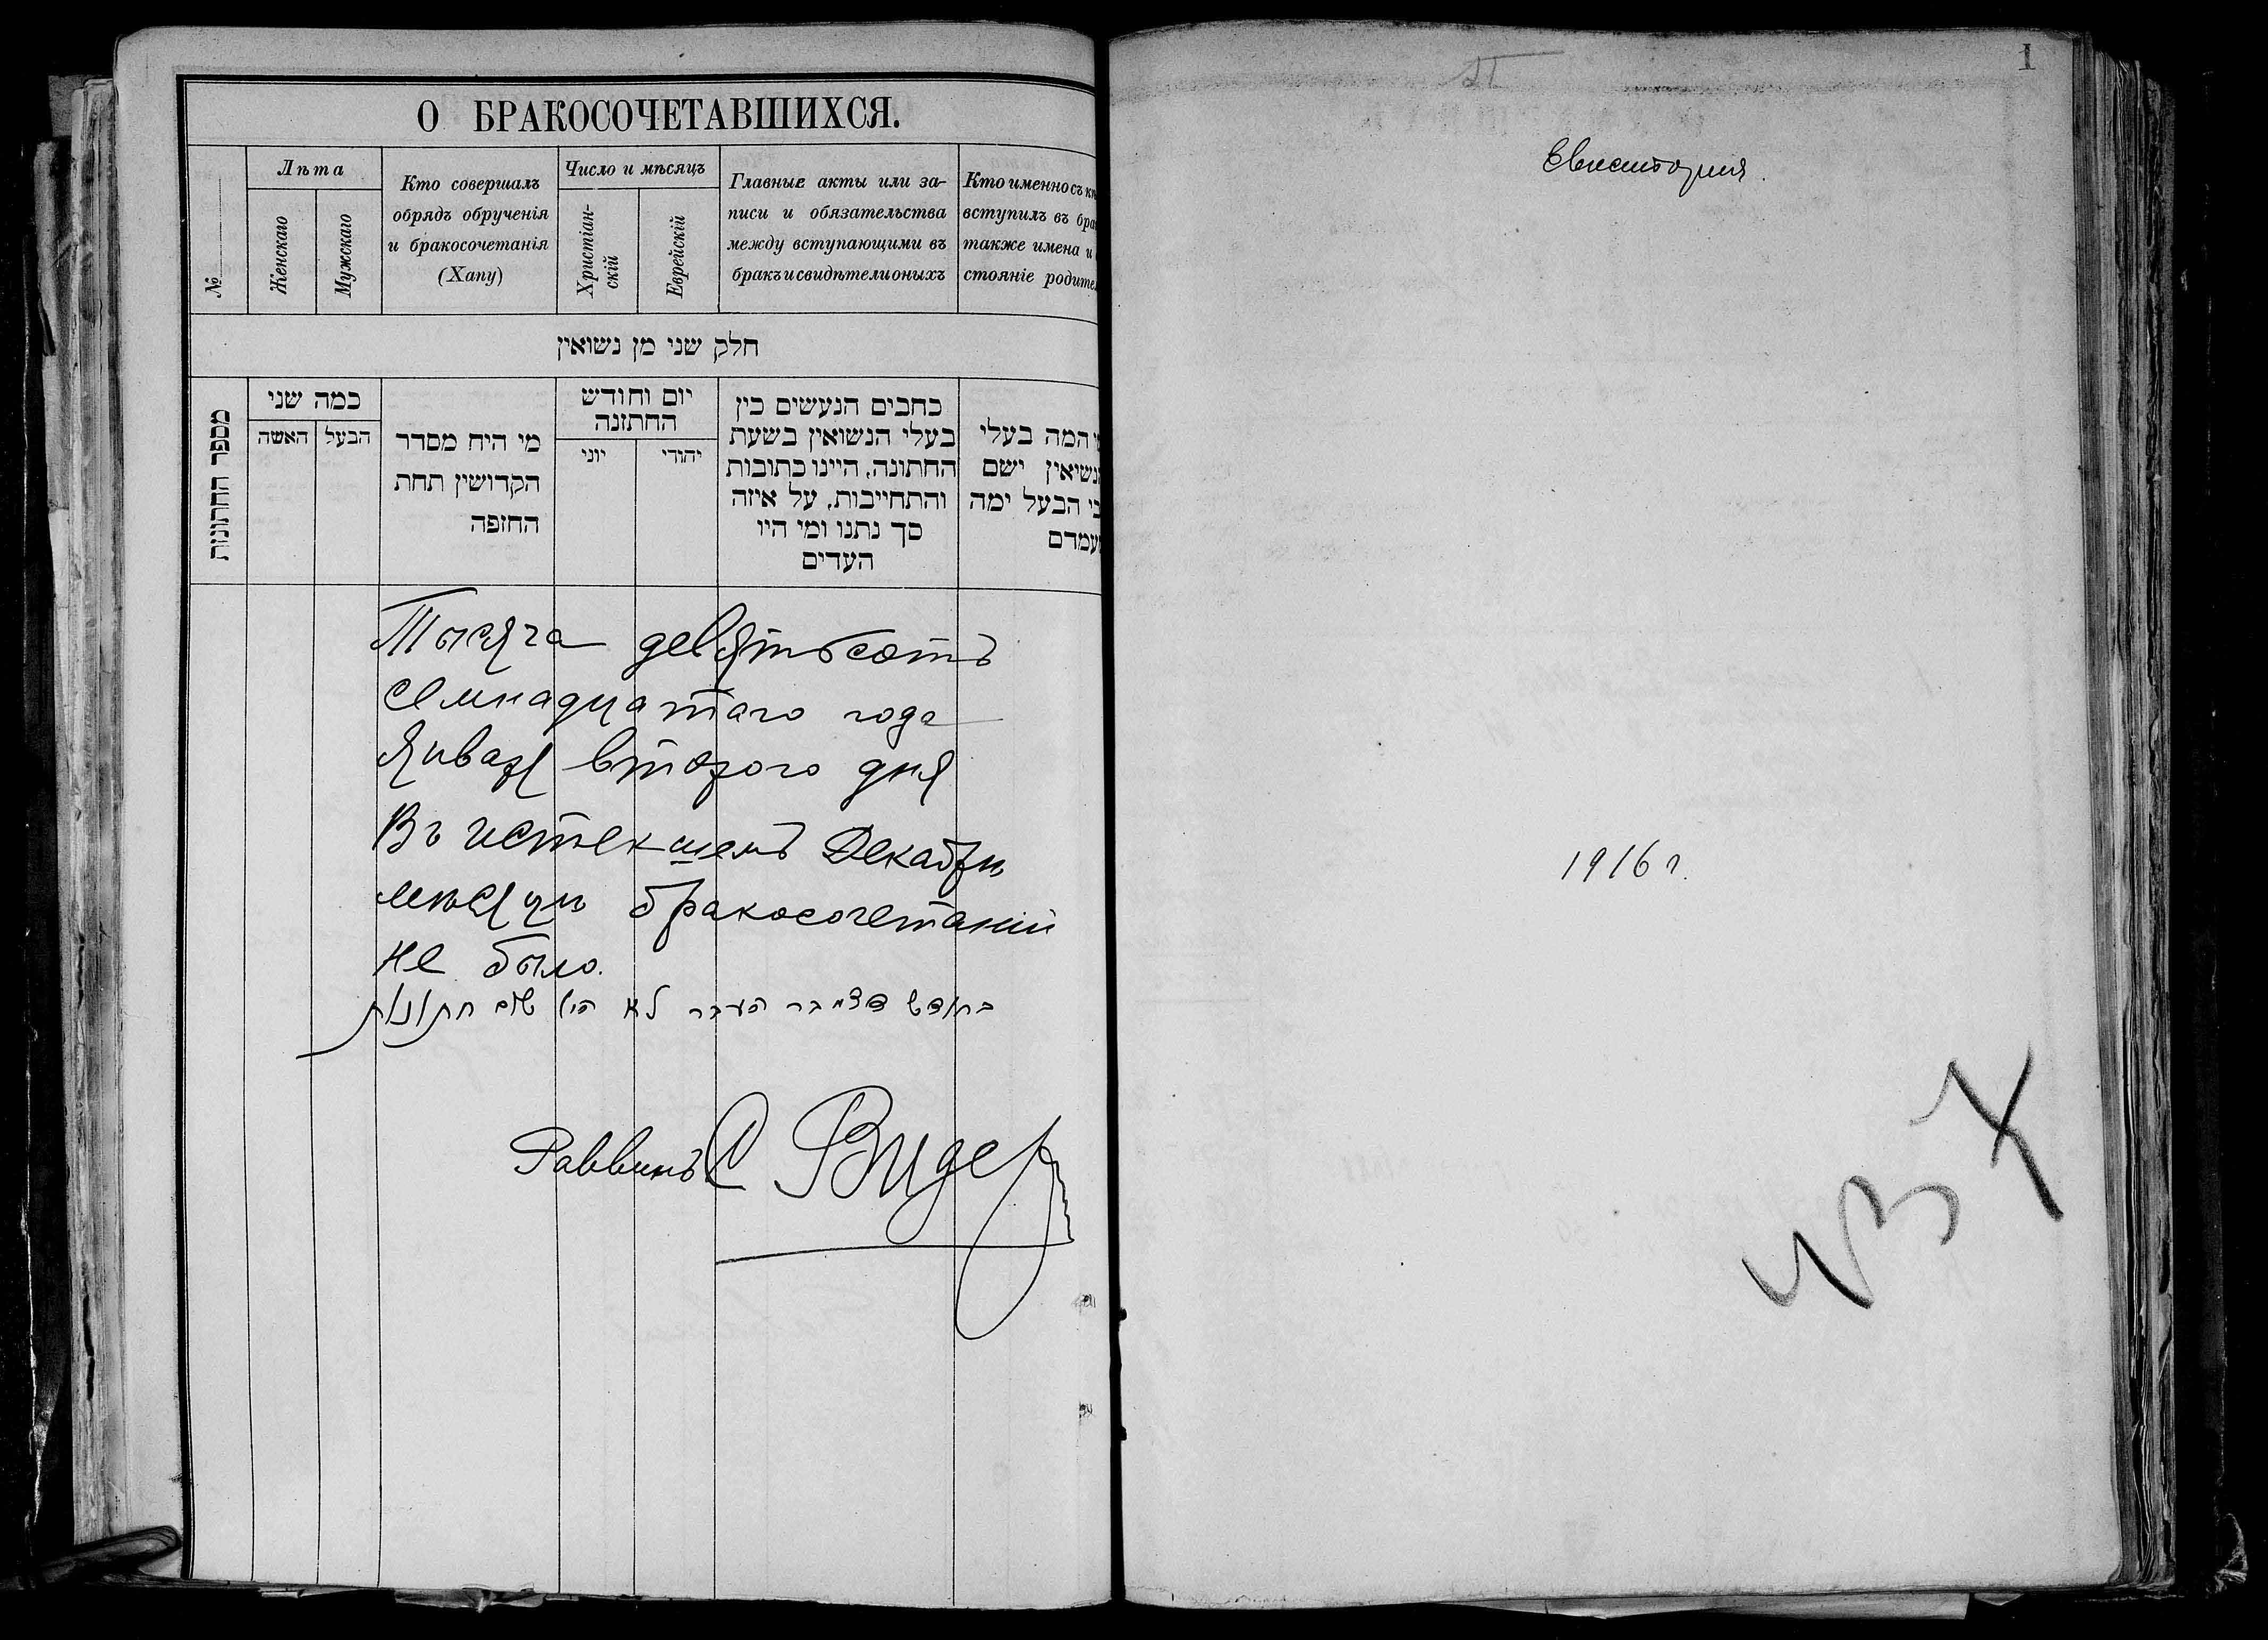 О БРАКОСОЧЕТАВШИХСЯ.
№
Лѣта
Женскаго
Мужскаго
Кто совершалъ
обрядъ обрученія
и бракосочетанія
(Хапу)
Число и мѣсяцъ
Христіан-
скій
Еврейскій
Главные акты или за-
писи и обязательства
между вступающими въ
бракъ и свидѣтели оныхъ
Кто именно съ к
вступилъ въ бра
также имена и
стояніе родите
חלק שני מן נשואין
מספר החתונות
כמה שני
האשה
הבעל
מי היח מסדר
הקדושין תחת
החופה
יום וחודש
החתונה
יוני
יהודי
כחבים הנעשים כין
בעלי הנשואין בשעת
החתונה, היינו כתובות
והתחייבות, על איזה
סך נתנו ומי היו
העדים
המה בעלי
נשיאין ישם
הבעל ימה
עמדם
Тысяча девятьсотъ
семнадцатаго года
Января второго дня
Въ истекшемъ Декабрѣ
мѣсяцѣ бракосочетаній
не было.
בחודש דצמבר העבר לא היו שום חתונות
Раввинъ С Видер
1
Евпаторія.
1916 г.